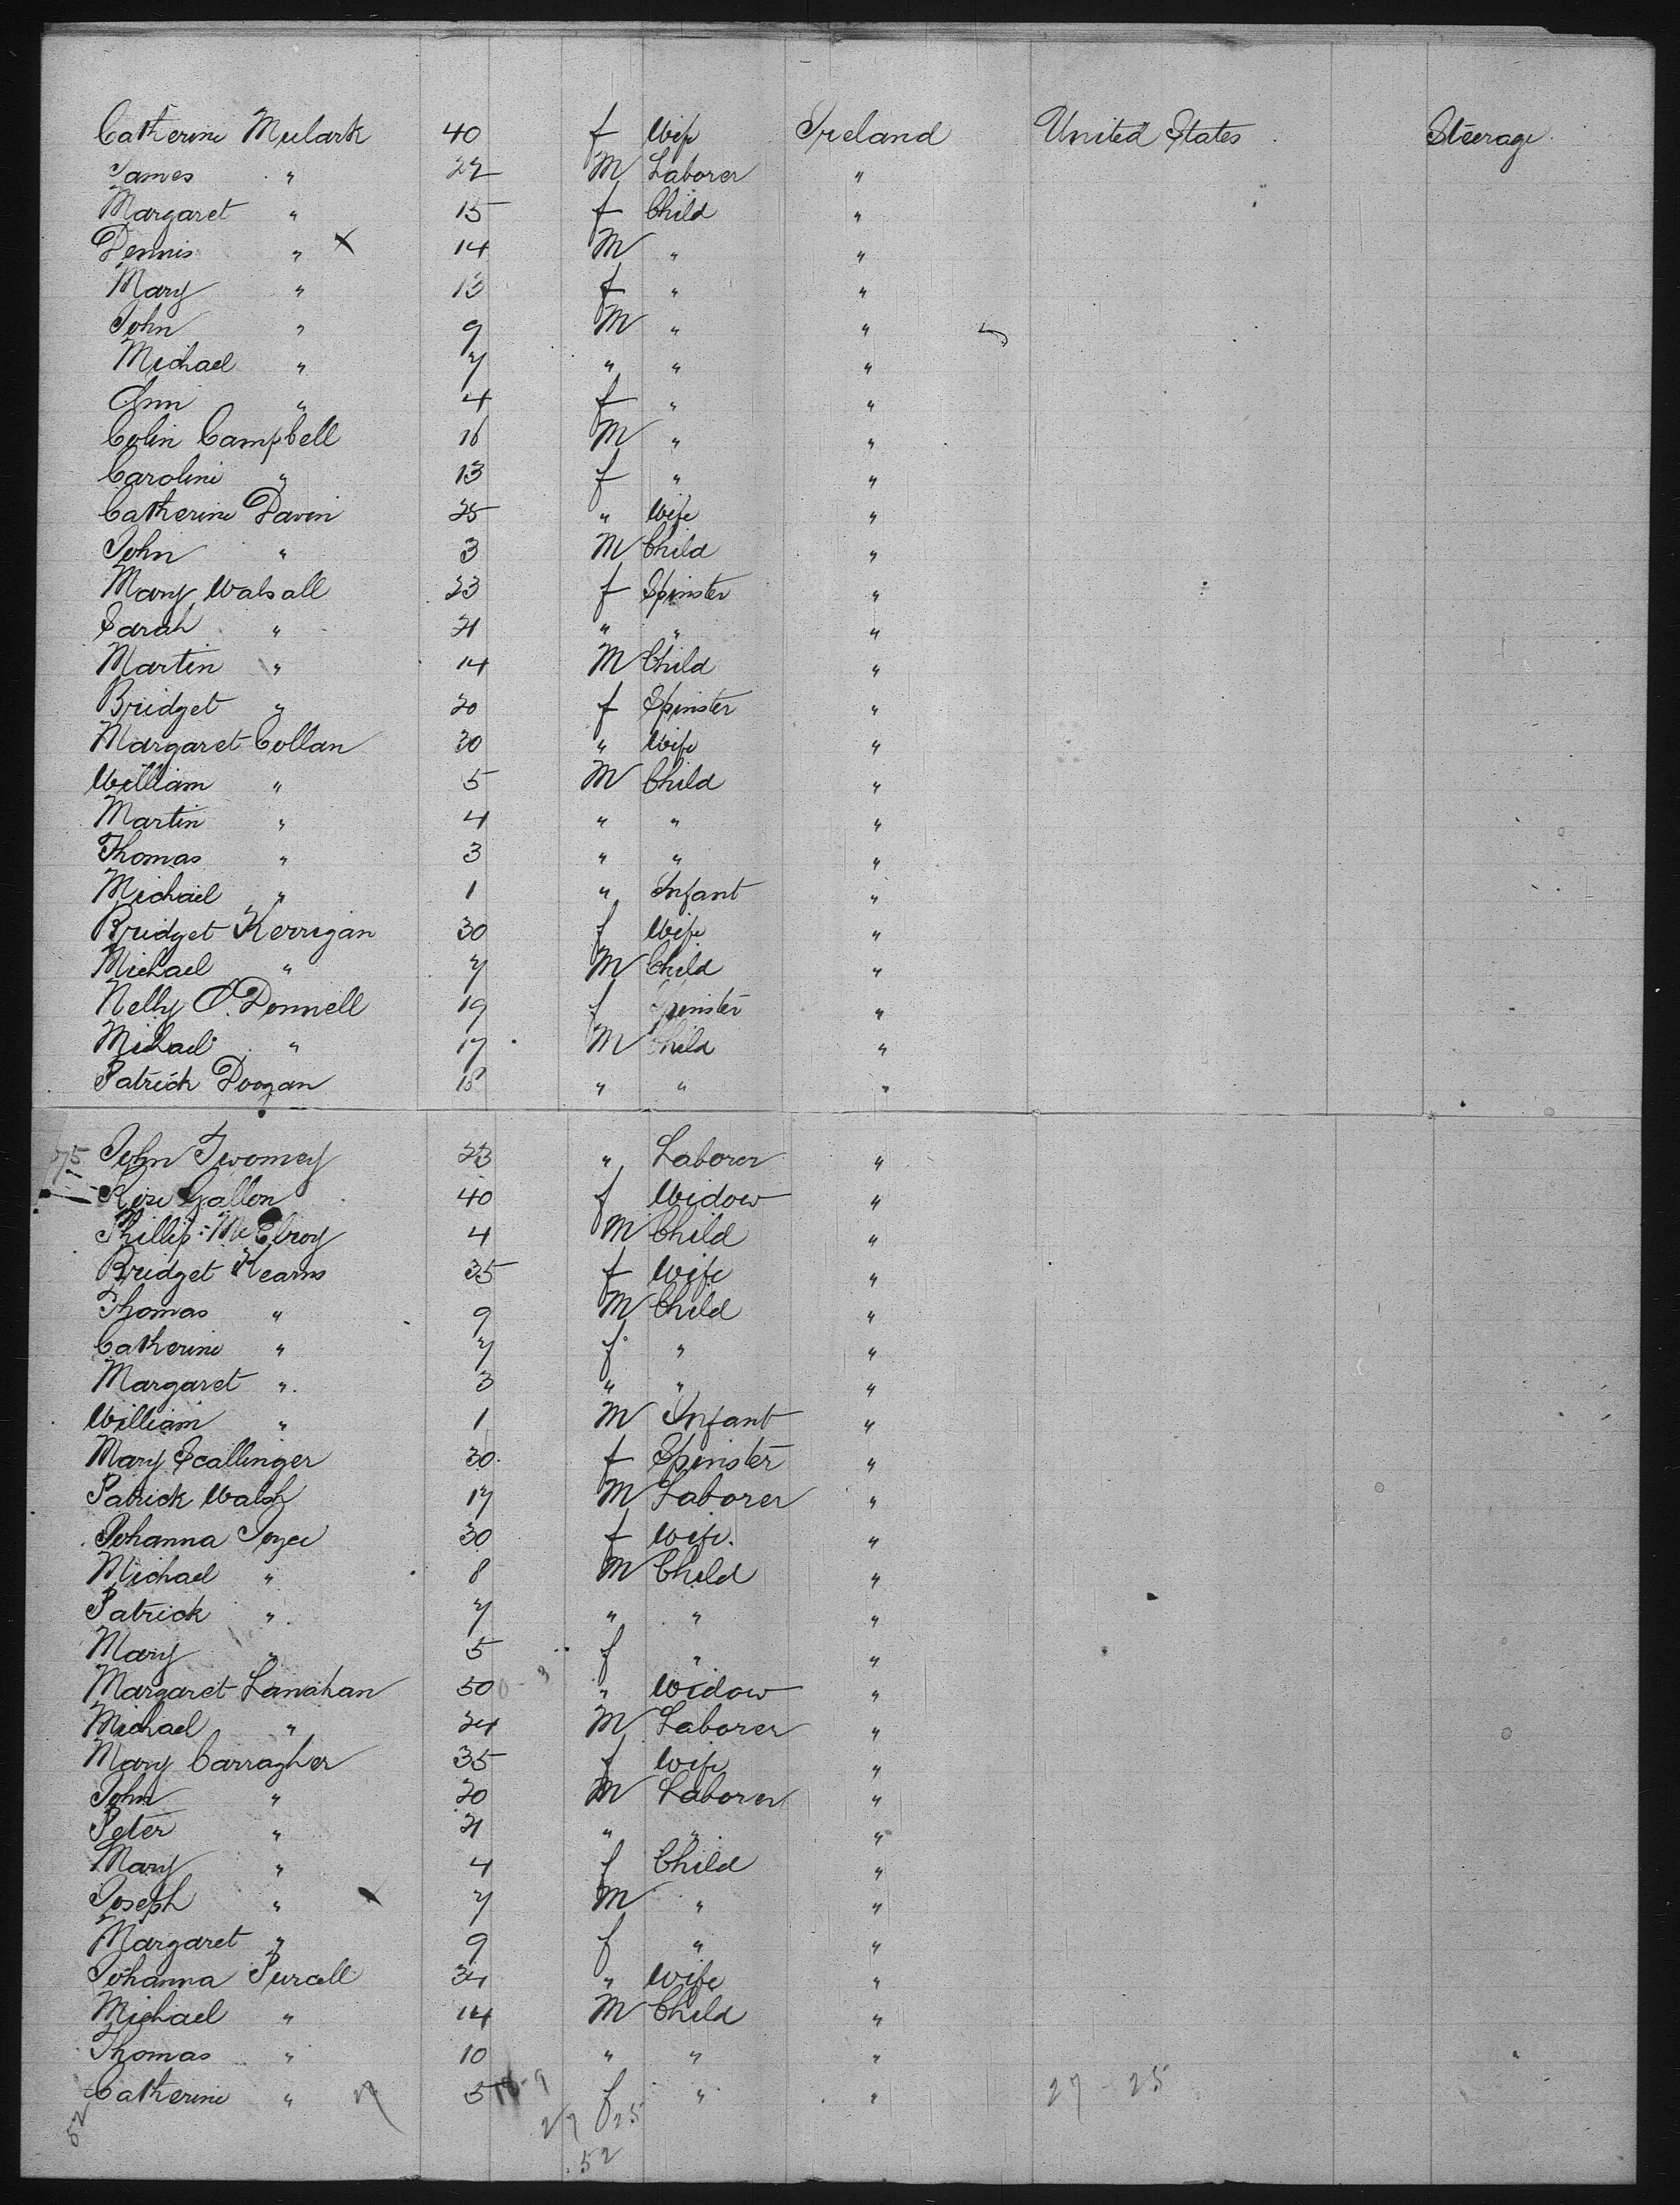 Catherine Mulark 40 f Wife Ireland United States Steerage
James " 22 M Laborer "
Margaret " 15 f Child "
Dennis " x 14 M " "
Mary " 13 f " "
John " 9 M " "
Michael " 7 " " "
Ann " 4 f " "
Colin Campbell 16 M " "
Caroline " 13 f " "
Catherine Davin 25 " Wife "
John " 3 M Child "
Mary Walsall 23 f Spinster "
Sarah " 21 " " "
Martin " 14 M Child "
Bridget " 20 f Spinster "
Margaret Collan 30 " Wife "
William " 5 M Child "
Martin " 4 " " "
Thomas " 3 " " "
Michael " 1 " Infant "
Bridget Kerrigan 30 f Wife "
Michael " 7 M Child "
Nelly O'Donnell 19 f Spinster "
Michael " 17 M Child "
Patrick Doogan 18 " " "
John Twomey 23 " Laborer "
Rose Gallon 40 f Widow "
Phillip McElroy 4 M Child "
Bridget Kearns 35 f Wife "
Thomas " 9 M Child "
Catherine " 7 f " "
Margaret " 3 " " "
William " 1 M Infant "
Mary Scallinger 30 f Spinster "
Patrick Walsh 17 M Laborer "
Johanna Joyce 30 f Wife "
Michael " 8 M Child "
Patrick " 7 " " "
Mary " 5 f " "
Margaret Lanahan 50 " Widow "
Michael " 24 M Laborer "
Mary Carragher 35 f Wife "
John " 20 M Laborer "
Peter " 21 " " "
Mary " 4 f Child "
Joseph " x 7 M " "
Margaret " 9 f " "
Johanna Purcell 34 " Wife "
Michael " 14 M Child "
Thomas " 10 " " "
Catherine " 5 f " " 27-25
52 27 25
52